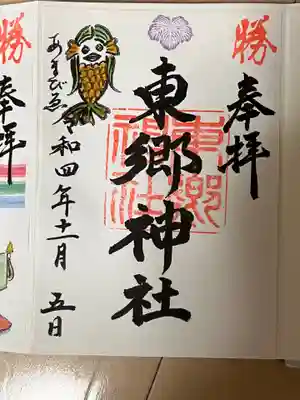 勝
奉拝
東郷神社
東郷神社
あまびゑ
令和四年十一月五日
勝
奉拝